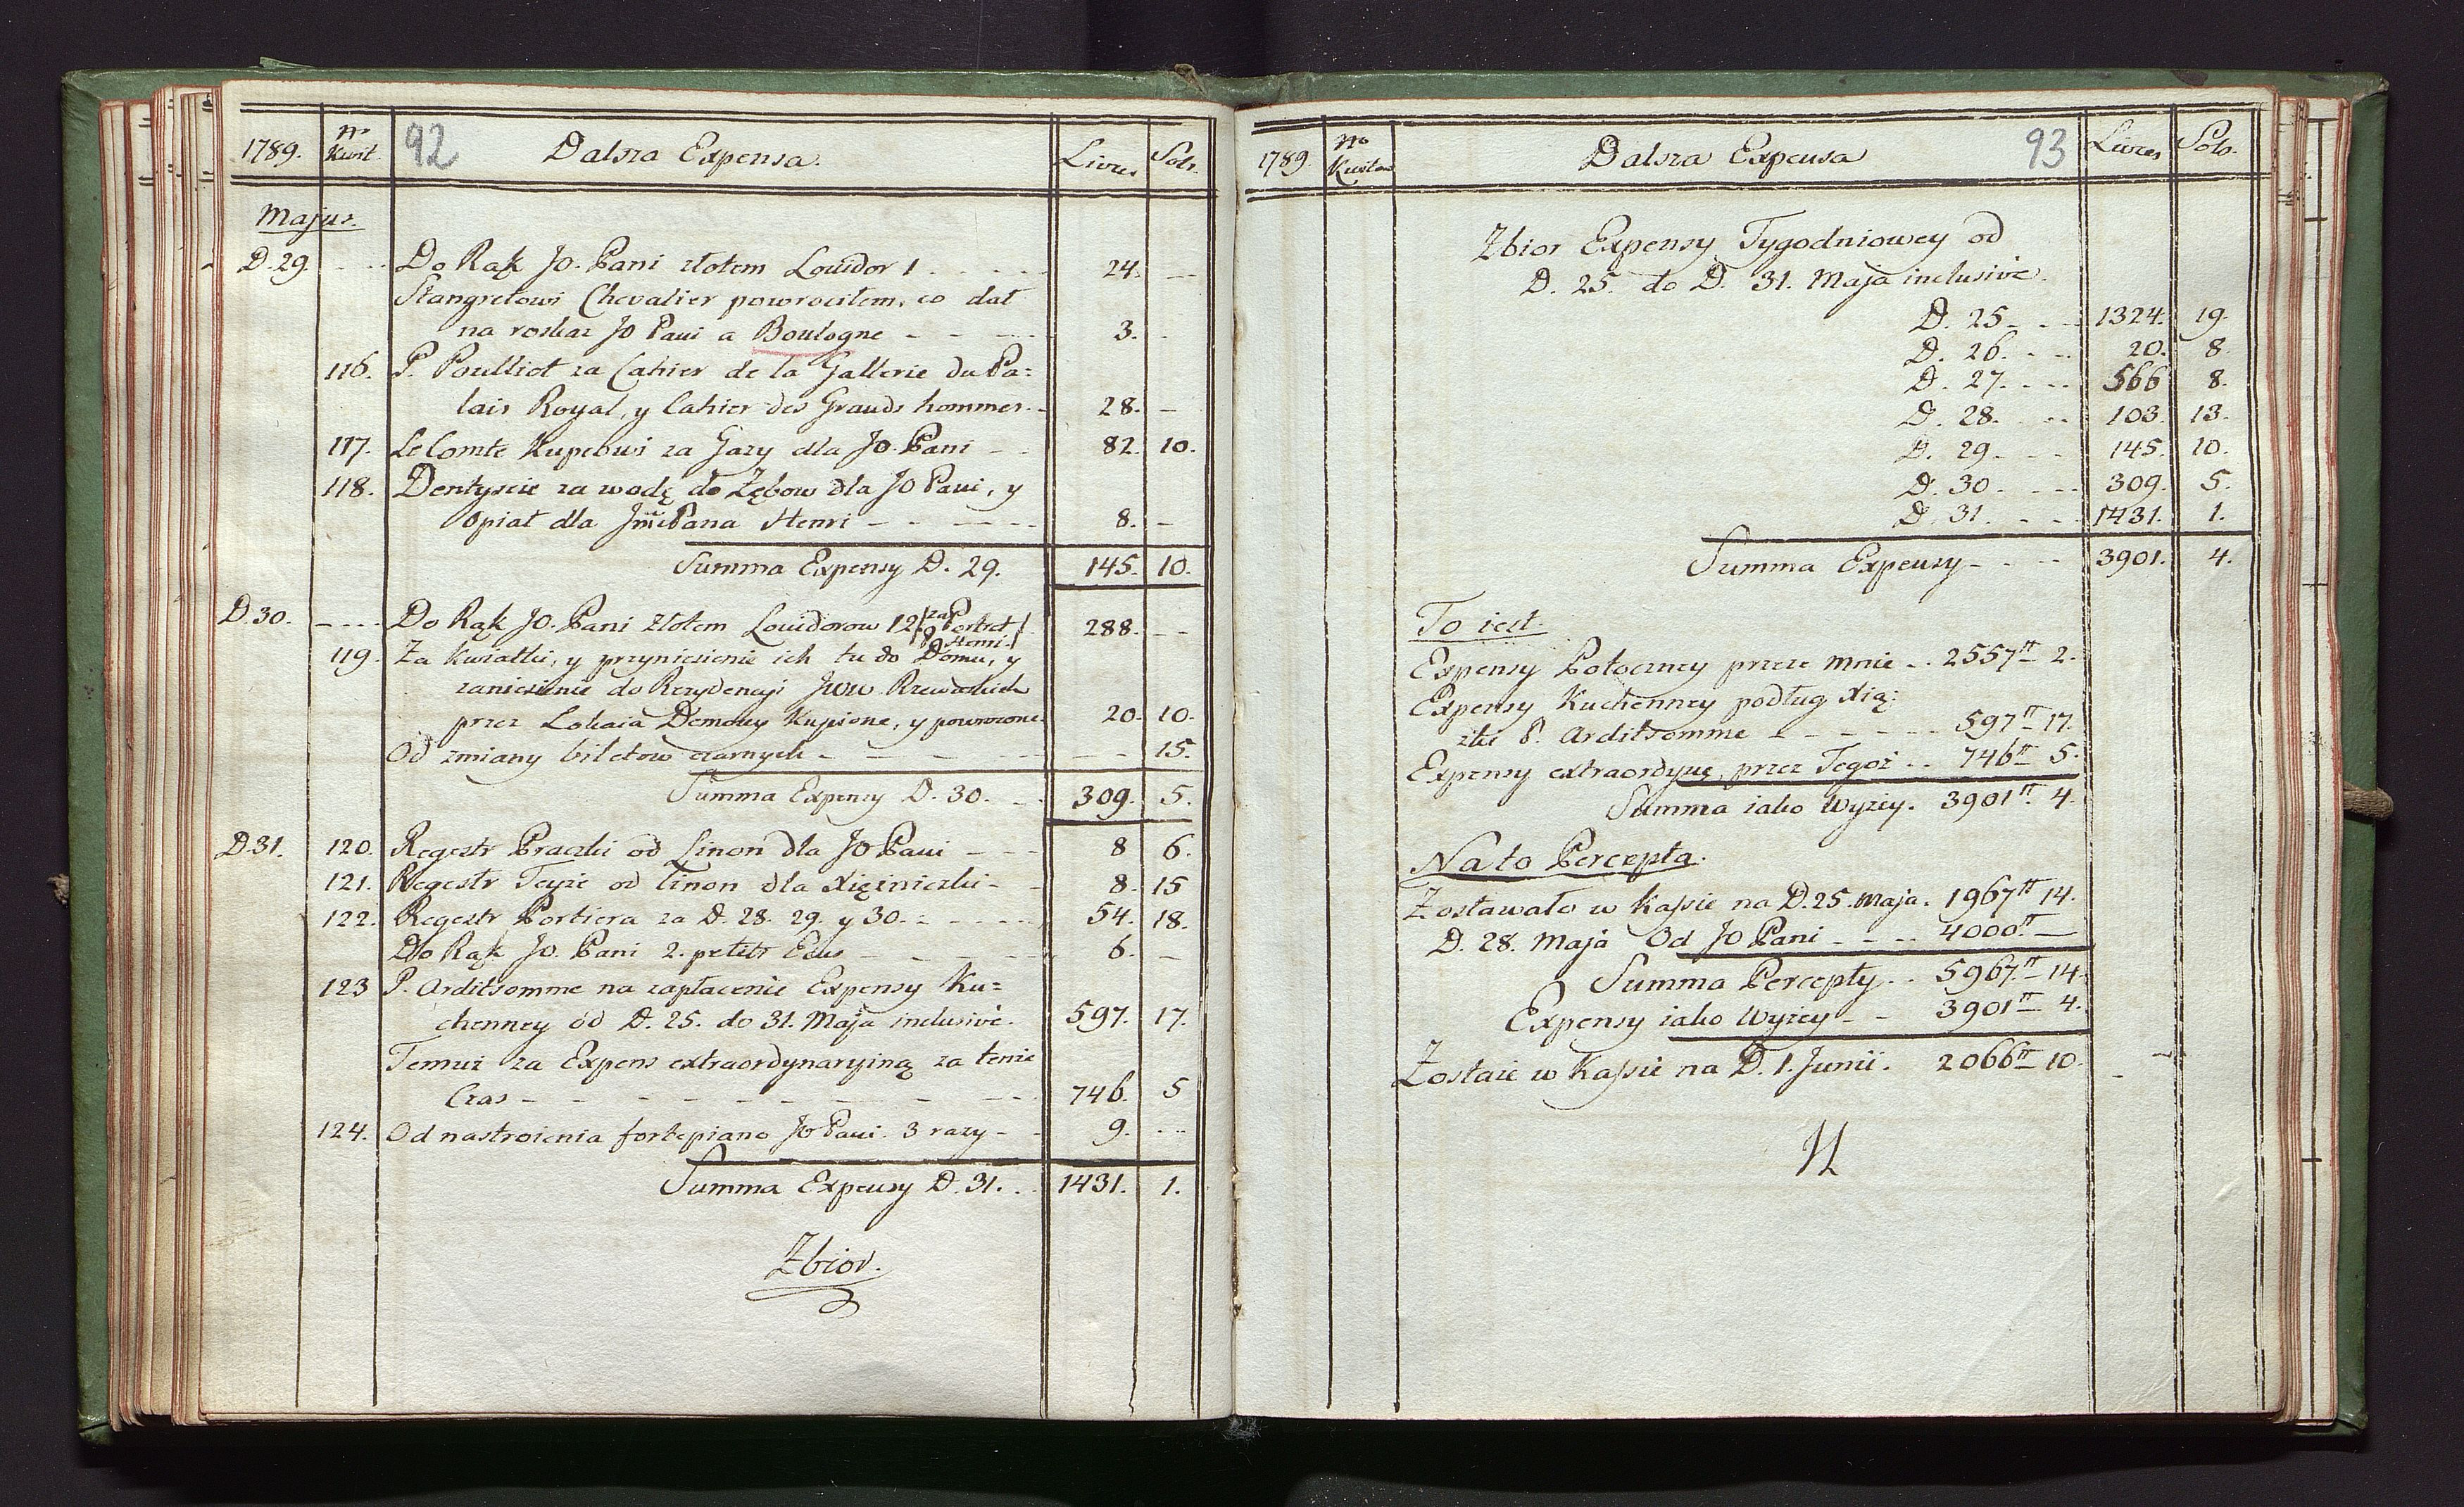 1789. Nro Kwit. 92 Dalsza Expensa. Livres Sols.
Majus.
D. 29. Do Rąk JO. Pani złotem Louidor 1 24.
Stangretowi Chevalier powrociłem, co dał
na roskaz JO Pani a Boulogne 3.
116. P. Poulliot za Cahier de la Gallerie du Pa=
lais Royal, y Cahier des Grands hommes 28.
117. Le Comte Kupcowi za Gazy dla JO. Pani 82. 10.
118. Dentyscie za wodę do Zębow dla JO Pani, y
Opiat dla Jmć Pana Henri 8.
Summa Expensy D. 29. 145. 10.
D. 30. Do Rąk JO. Pani złotem Louidorow 12 (za Portret 288.
P. Henri)
119. Za Kwiatki, y przyniesienie ich tu do Domu, y
zaniesienie do Rezydencyi Jww. Rzewuskich
przez Lokaia Demony Kupione, y powrocone 20. 10.
Od zmiany biletow czarnych 15.
Summa Expensy D. 30. 309. 5.
D. 31. 120. Regestr Praczki od Linon dla JO Pani 8 6.
121. Regestr Teyże od Linon dla Xiężniczki 8. 15
122. Regestr Portiera za D. 28. 29. y 30. 54. 18.
Do Rąk JO. Pani 2. petits Ecus 6.
123 P. Arditsomme na zapłacenie Expensy Ku=
chenney od D. 25. do 31. Maja inclusive. 597. 17.
Temuż za Expens extraordynaryiną za tenże
Czas 746. 5
124. Od nastroienia fortepiano JO Pani. 3 razy 9.
Summa Expensy D. 31. 1431. 1.
Zbior.
1789. Nro Kwitow Dalsza Expensa 93 Livres Sols.
Zbior Expensy Tygodniowey od
D. 25. do D. 31. Maja inclusive.
D. 25 1324. 19.
D. 26. 20. 8.
D. 27. 566 8.
D. 28. 103. 13.
D. 29 145. 10.
D. 30. 309. 5.
D. 31. 1431. 1.
Summa Expensy 3901. 4.
To iest.
Expensy Potoczney przeze mnie 2557 tt 2.
Expensy Kuchenney podług Xią:
żki P. Arditsomme 597 tt 17.
Expensy extraordyną, przez Tegoż 746 tt 5.
Summa iako Wyżey. 3901 tt 4.
Na to Percepta.
Zostawało w Kassie na D. 25. Maja. 1967 tt 14.
D. 28. Maja Od JO Pani 4000 tt
Summa Percepty 5967 tt 14.
Expensy iako Wyżey 3901 tt 4.
Zostaie w Kassie na D. 1. Junii. 2066 tt 10.